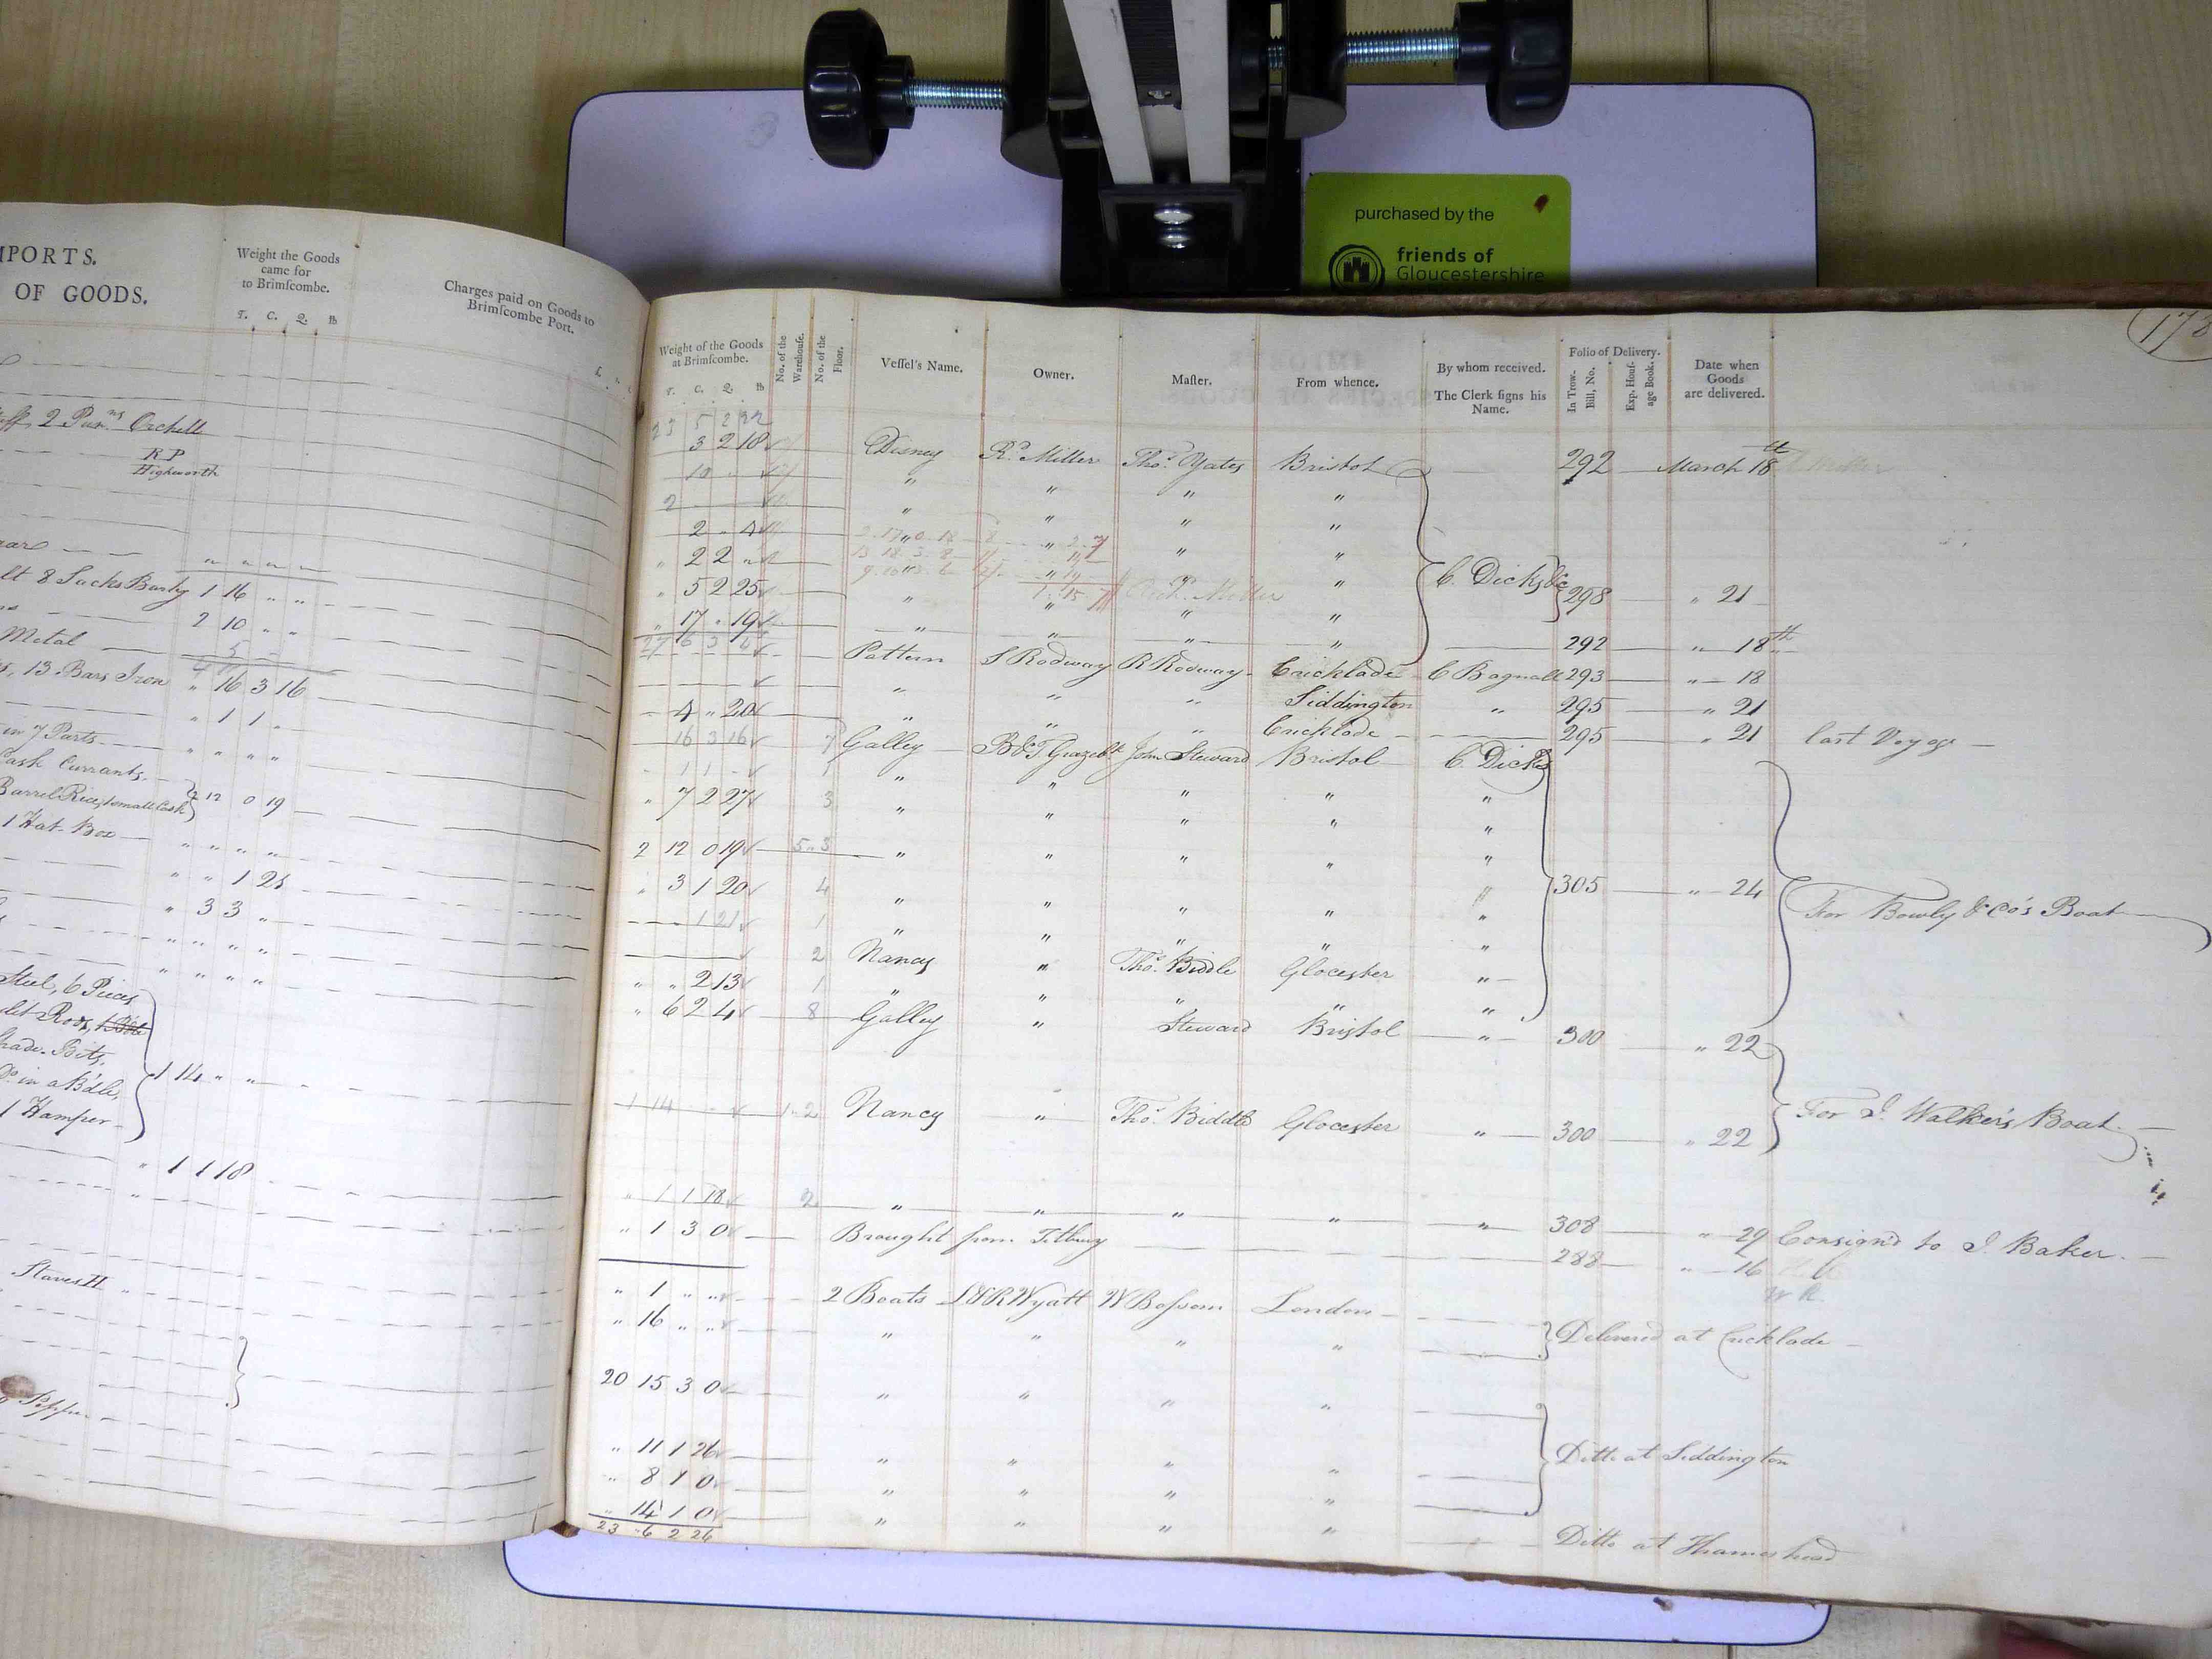 purchased by the
friends of
Gloucestershire
MPORTS.
OF GOODS.
Weight the Goods
came for
to Brimſcombe.
T. C. Q. lb
Charges paid on Goods to
Brimſcombe Port.
2 Pun.ns Orchell
RP
Highworth
lt 8 Sacks Barley 1 16 " "
2 10 " "
Metal 5
13 Bars Iron " 16 3 16
" 1 1 "
in 7 Parts " " " "
Cask Currants
Barrel Rice, 1 small Cask 2 12 0 19
1 Hat Box " " " "
" " 1 21
" 3 3 "
" " " "
" " " "
Steel, 6 Pieces
Rods,
Bits,
Do. in a B'dle, 1 14 " "
1 Hamper
" 1 1 18
Staves II
Weight of the Goods
at Brimſcombe.
T. C. Q. lb
No. of the
Warehouſe.
No. of the
Floor.
Veſſel's Name.
Owner.
Maſter.
From whence.
By whom received.
The Clerk ſigns his
Name.
Folio of Delivery.
In Trow-
Bill, No.
Exp. Houſ-
age Book.
Date when
Goods
are delivered.
23 5 2 22
3 2 18 Disney Rd. Miller Thos. Yates Bristol 292 March 18th
10 " " " "
2 " " " "
2 " 4 " " " "
" 2 2 " " " " " C. Dicks
" 5 2 25 " " " " 298 " 21
" 17 " 19 " " " " 292 " 18th
27 6 3 4
Pattern S Rodway R Rodway Cricklade C Bagnall 293 " 18
" " " Siddington " 295 " 21
4 " 20 " " " Cricklade 295 " 21 last Voyage
16 3 16 7 Galley B & T Grazebk John Steward Bristol C. Dicks
1 1 " 1 " " " " "
" 7 2 27 3 " " " " "
2 12 0 19 5 " 3 " " " " "
" 3 1 20 4 " " " " " 305 " 24 For Bowly & Co's Boat
1 21 1 " " " " "
2 Nancy " Thos. Biddle Glocester "
" " 2 13 1 " " " " "
" 6 2 4 8 Galley " Steward Bristol " 300 " 22
1 14 1 " 2 Nancy " Thos. Biddle Glocester " 300 " 22 For J. Walker's Boat
" 1 1 18 2 " " " " " 308 " 29 Consign'd to J. Baker
" 1 3 0 Brought from Tetbury 288 " 16
W R.
" 1 " " 2 Boats J & R Wyatt W Boſsom London
" 16 " " " " " " Delivered at Cricklade
20 15 3 0 " " " "
" 11 1 26 " " " " Ditto at Siddington
" 8 1 0 " " " "
" 14 1 0 " " " " Ditto at Thames head
23 6 2 26